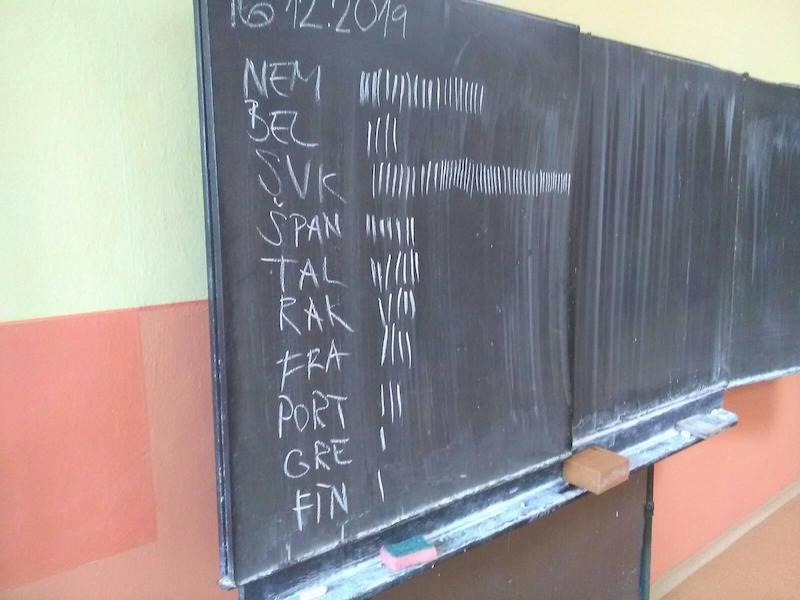 16 12.2019
NEM
BEL
SVK
ŠPAN
TAL
RAK
FRA
PORT
GRE
FIN